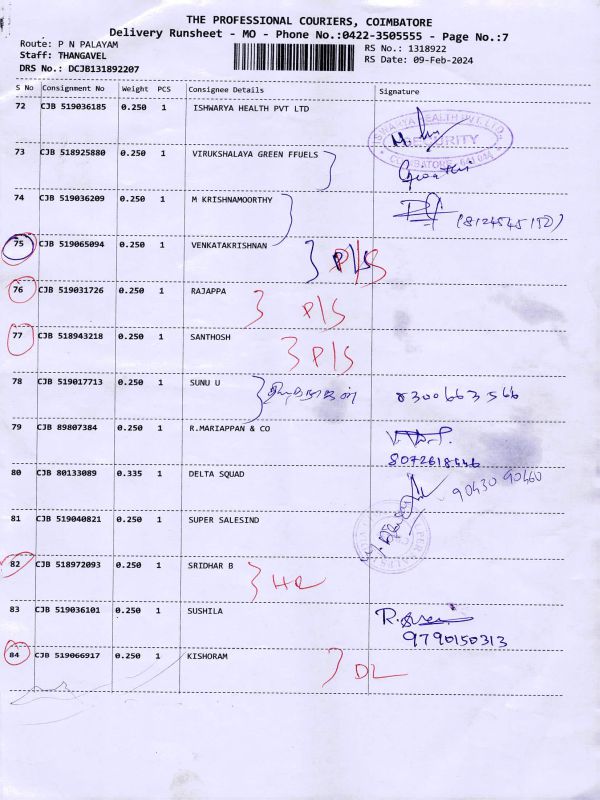 THE PROFESSIONAL COURIERS, COIMBATORE
Delivery Runsheet - MO - Phone No.:0422-3505555 - Page No.:7
Route: P N PALAYAM
Staff: THANGAVEL
DRS No.: DCJB131892207
RS No.: 1318922
RS Date: 09-Feb-2024
S No Consignment No Weight PCS Consignee Details Signature
72 CJB 519036185 0.250 1 ISHWARYA HEALTH PVT LTD
SECURITY
73 CJB 518925880 0.250 1 VIRUKSHALAYA GREEN FFUELS
74 CJB 519036209 0.250 1 M KRISHNAMOORTHY
75 CJB 519065094 0.250 1 VENKATAKRISHNAN P/S
76 CJB 519031726 0.250 1 RAJAPPA P/S
77 CJB 518943218 0.250 1 SANTHOSH P/S
78 CJB 519017713 0.250 1 SUNU U 8300663566
79 CJB 89807384 0.250 1 R.MARIAPPAN & CO
80 CJB 80133089 0.335 1 DELTA SQUAD 90430 90460
81 CJB 519040821 0.250 1 SUPER SALESIND
82 CJB 518972093 0.250 1 SRIDHAR B
83 CJB 519036101 0.250 1 SUSHILA
9790150313
84 CJB 519066917 0.250 1 KISHORAM DL